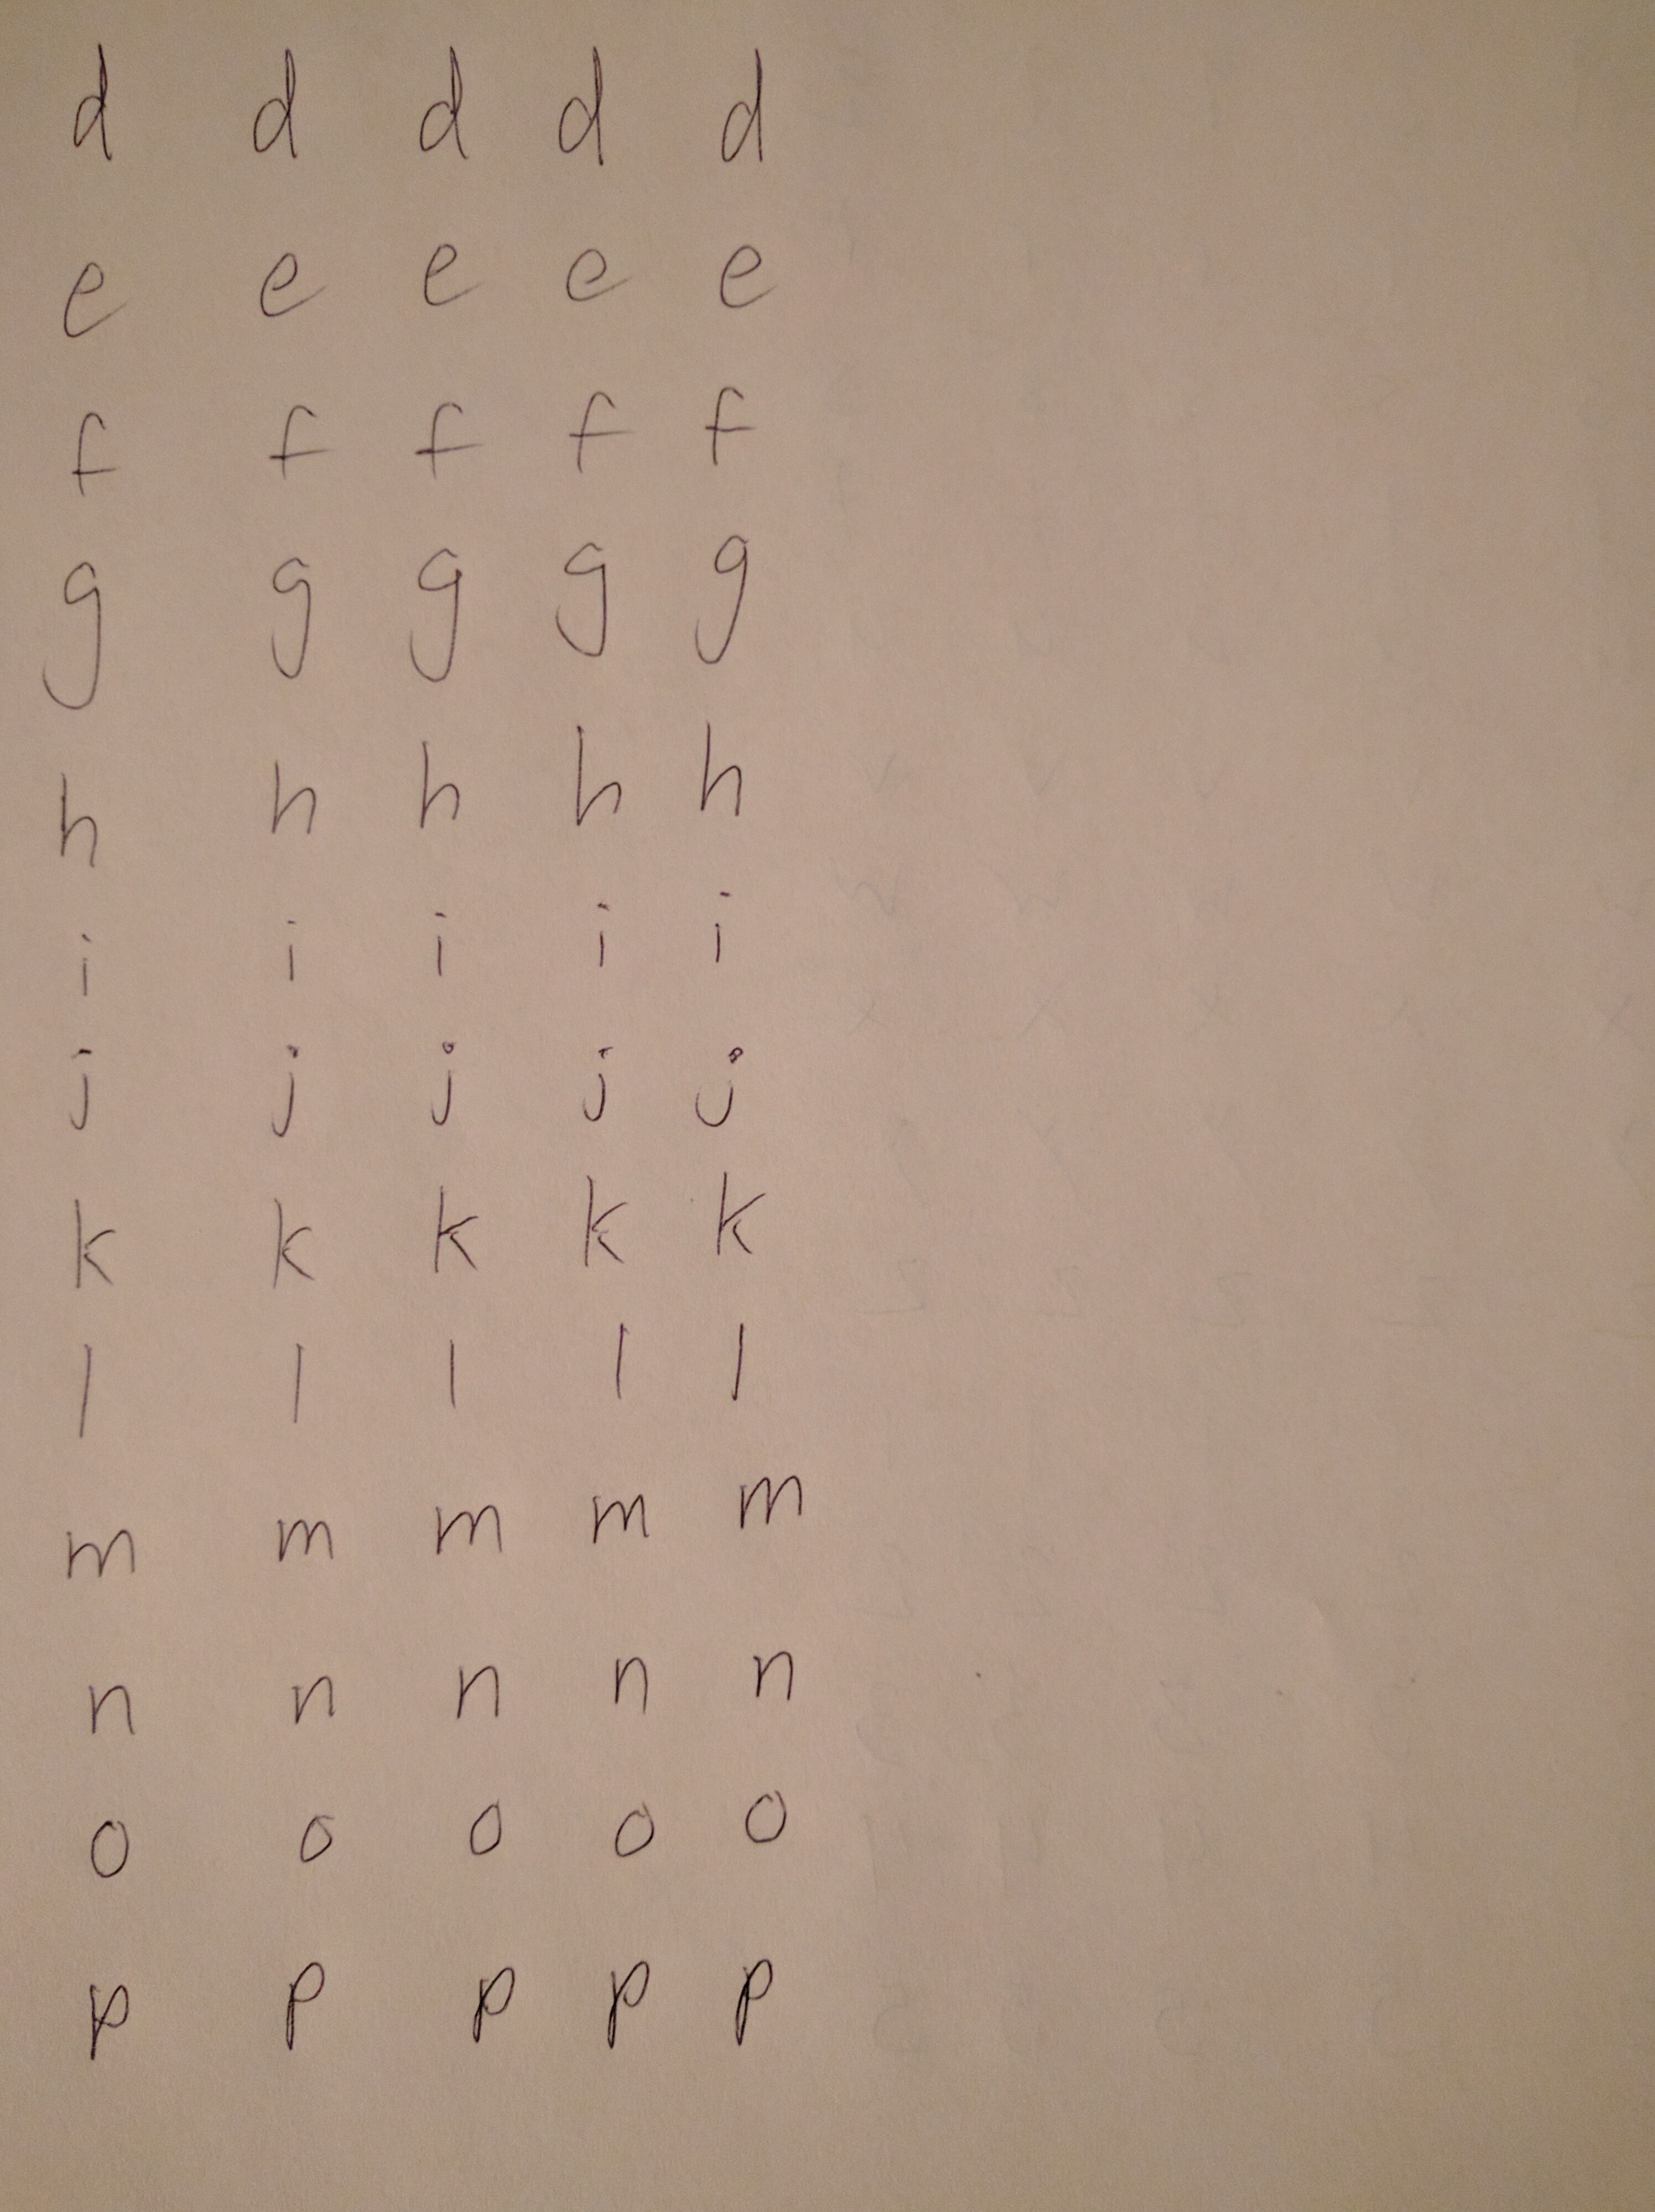 d d d d d
e e e e e
f f f f f
g g g g g
h h h h h
i i i i i
j j j j j
k k k k k
l l l l l
m m m m m
n n n n n
o o o o o
p p p p p